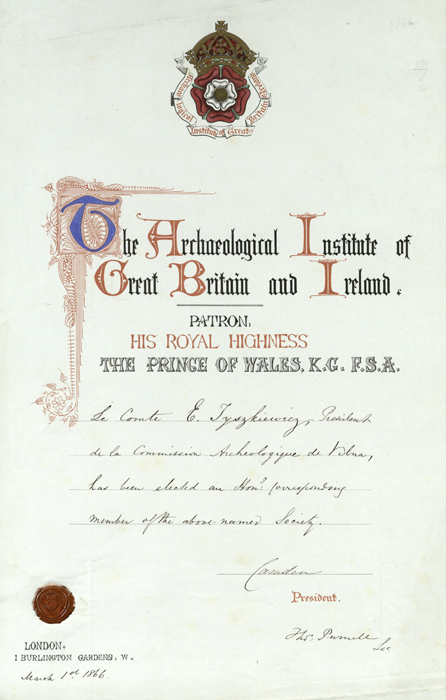 Archæological Institute of Great Britain & Ireland
The Archaeological Institute of
Great Britain and Ireland.
PATRON:
HIS ROYAL HIGHNESS
THE PRINCE OF WALES, K.G. F.S.A.
Le Comte E. Tyszkiewicz, Président
de la Commission Archeologique de Vilna,
has been elected an Hon.y Corresponding
member of the above-named Society.
Camden
President.
Thos. Purnell
Sec
LONDON.
1 BURLINGTON GARDENS, W.
March 1st 1866.